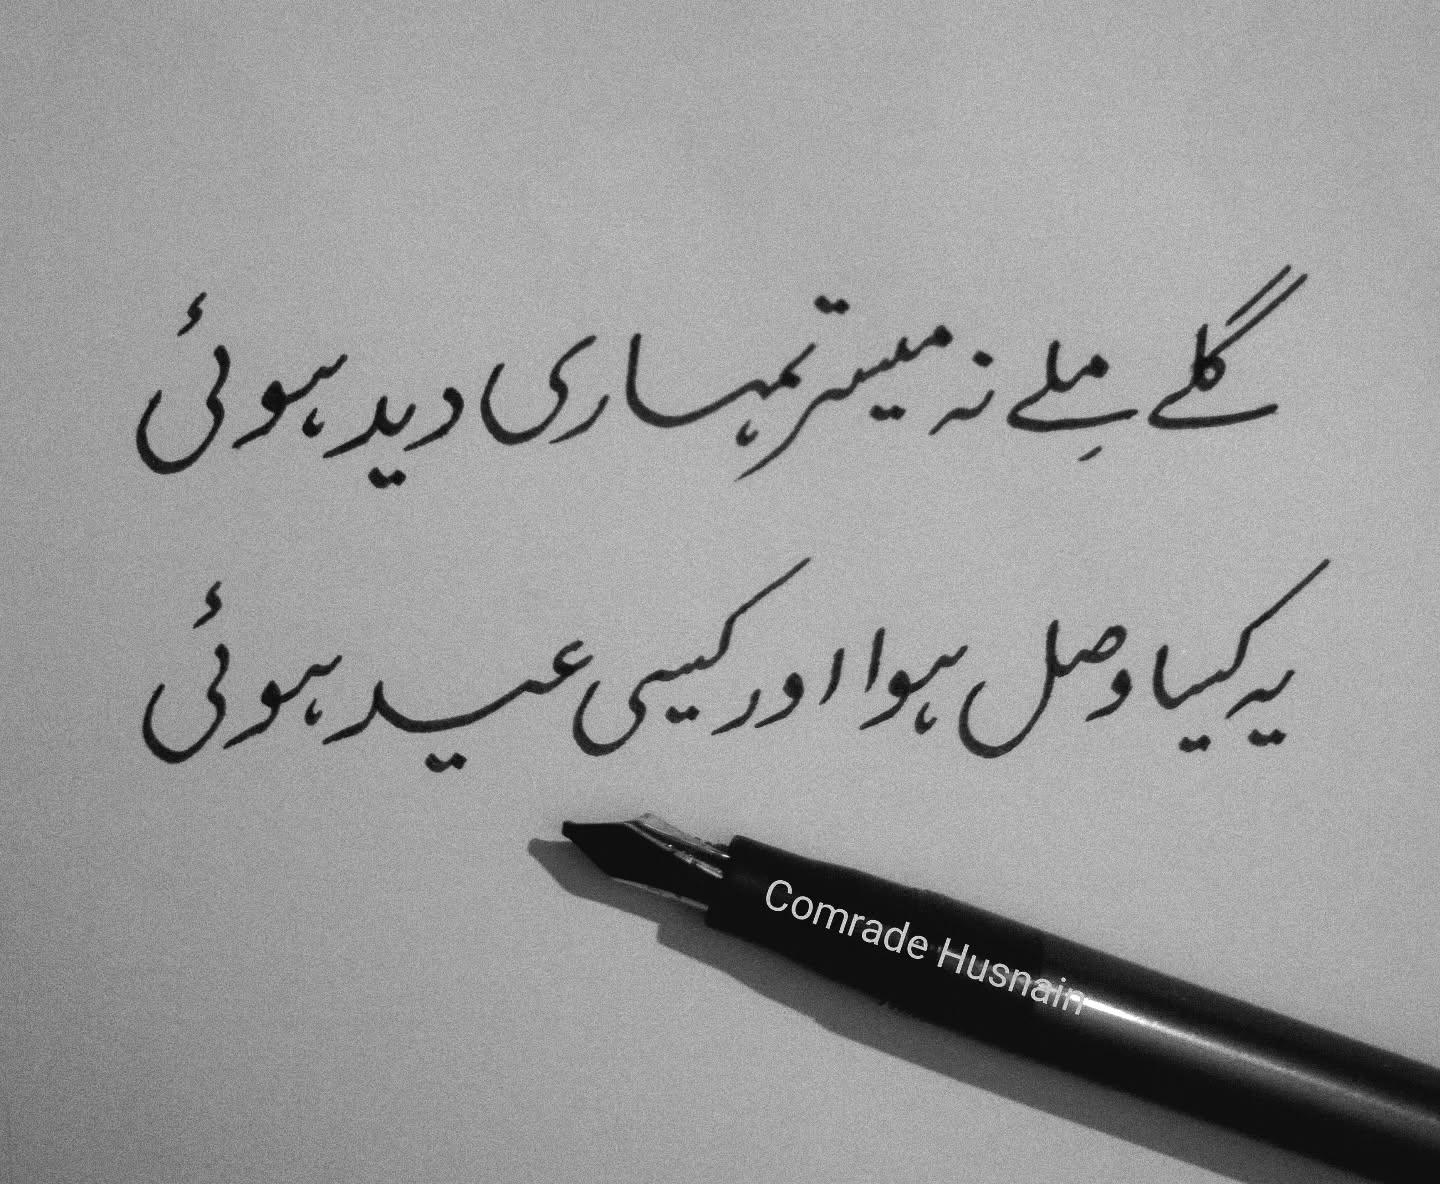 گلے مِلے نہ میسر تمہاری دید ہوئی
یہ کیسا وصل ہوا اور کیسی عید ہوئی
Comrade Husnain